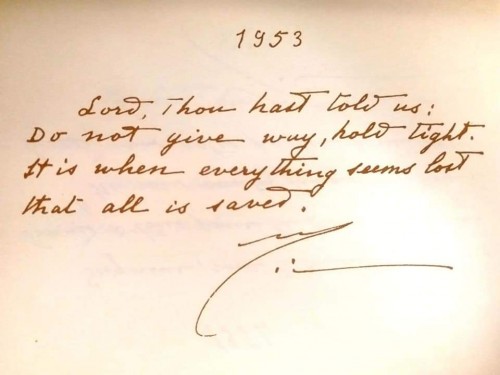 1953
Lord, Thou hast told us:
Do not give way, hold tight.
It is when everything seems lost
that all is saved.